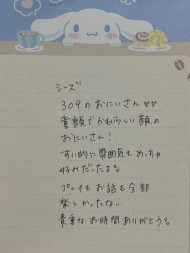 シーズ
304のおにいさん♡♡
童顔でかわらしい顔の
おにいさん!
すい的に雰囲気もめっちゃ
好みだったよ。
プレイもお話も全部
楽しかったない
貴重なお時間ありがとう。